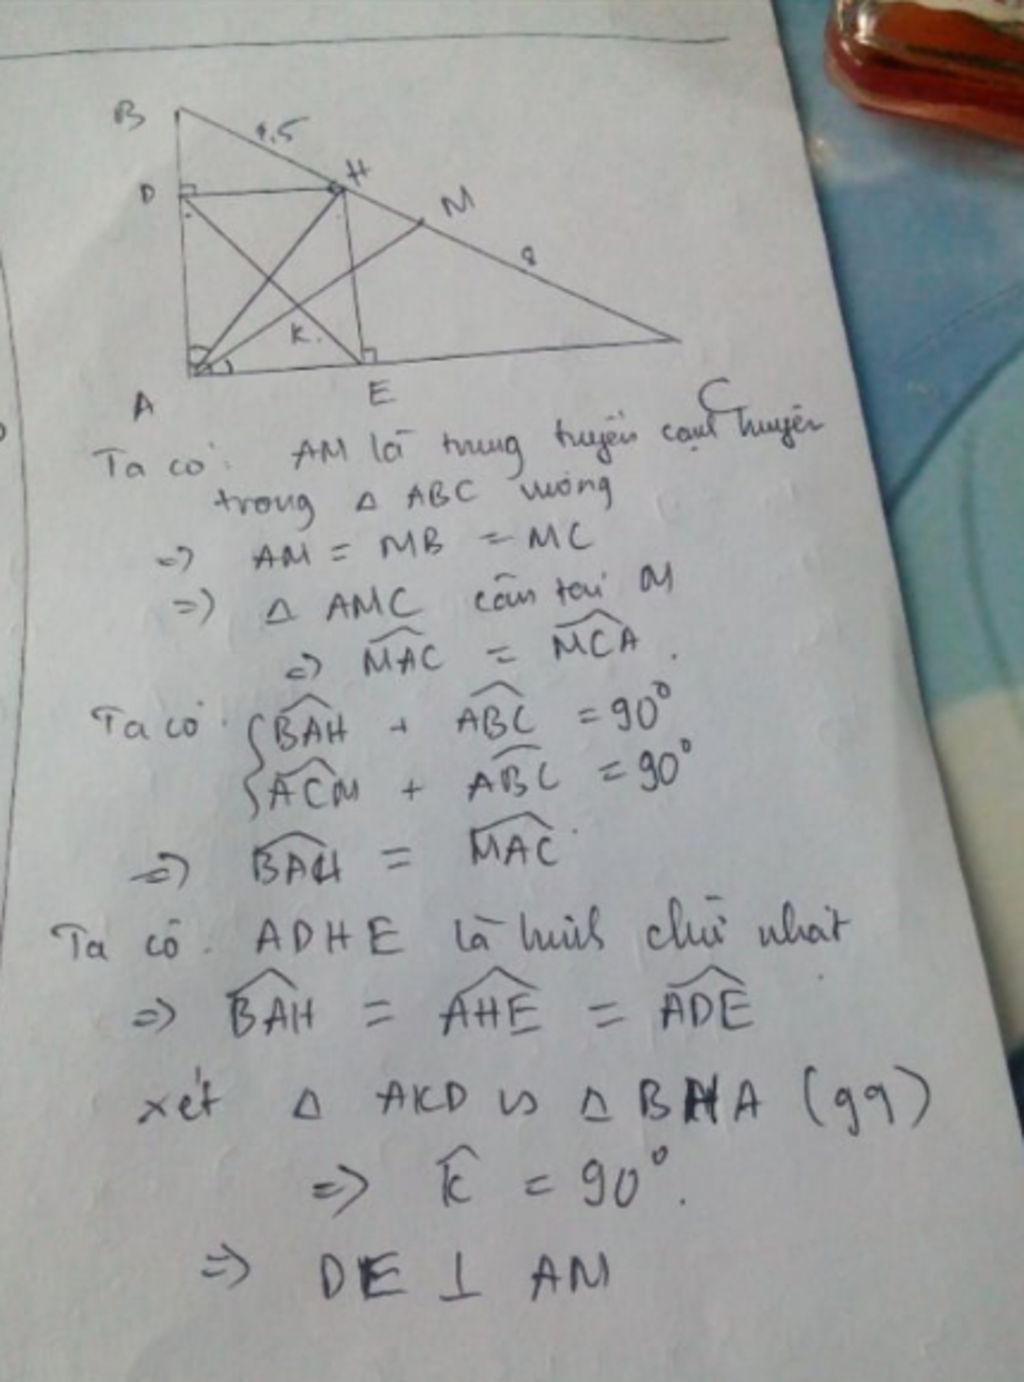 B
4.5
H
D
M
8
K
A
E
C
Ta có: AM là trung tuyến cạnh huyền
trong Δ ABC vuông
=> AM = MB = MC
=> Δ AMC cân tại M
=> MAC = MCA.
Ta có: BAH + ABC = 90°
ACM + ABC = 90°
=> BAH = MAC
Ta có. ADHE là hình chữ nhật
=> BAH = AHE = ADE
xét Δ AKD ∽ Δ BHA (gg)
=> K = 90°.
=> DE ⊥ AM